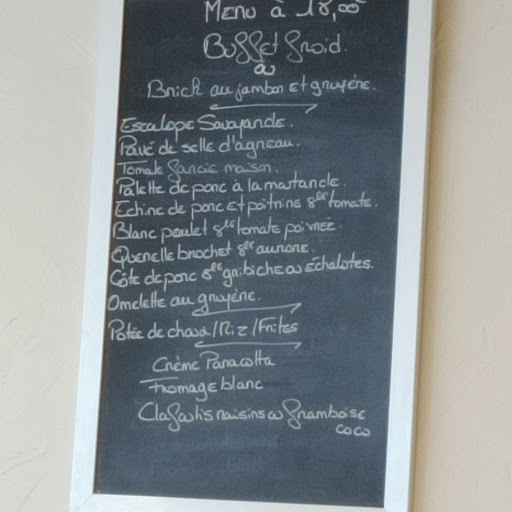 Menu à 18,00
Buffet froid.
ou
Brick au jambon et gruyère.
Escalope Savoyarde.
Pavé de selle d'agneau.
Tomate farcie maison.
Palette de porc à la moutarde.
Echine de porc et poitrine sce tomate.
Blanc poulet sce tomate poivrée.
Quenelle brochet sce aurore.
Côte de porc sce gribiche ou échalotes.
Omelette au gruyère.
Potée de choux/Riz/Frites
Crème Panacotta
Fromage blanc
Clafoutis raisins ou framboise
coco